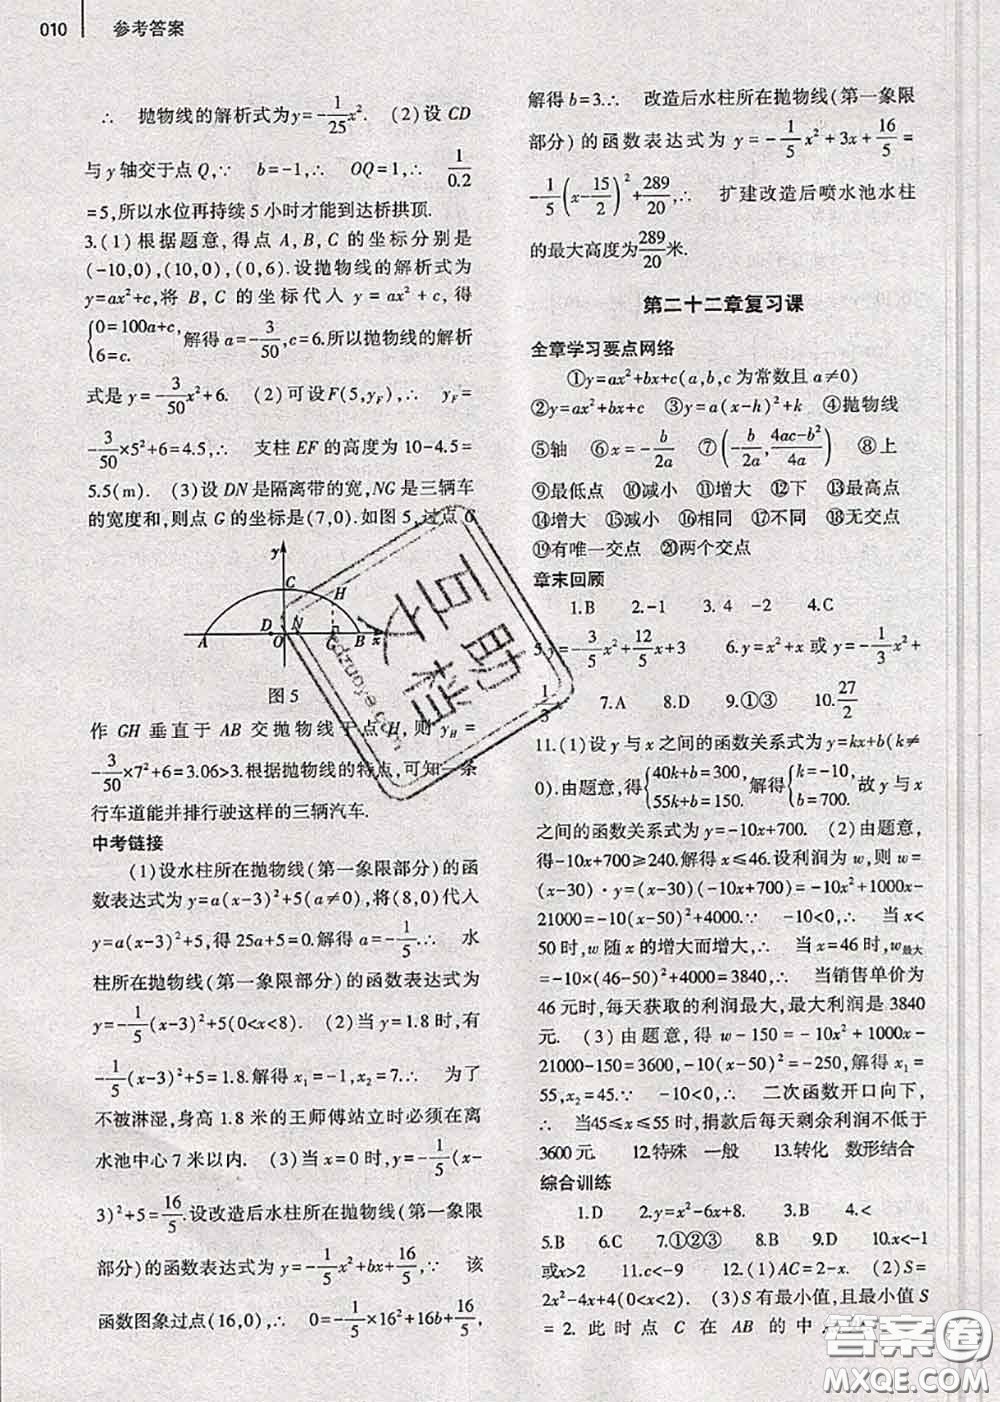 010 参考答案
∴ 抛物线的解析式为y=-1/25x². (2)设 CD
与y轴交于点Q,∵ b=-1,∴ OQ=1,∴ 1/0.2
=5,所以水位再持续5小时才能到达桥拱顶.
3.(1)根据题意,得点A,B,C的坐标分别是
(-10,0),(10,0),(0,6).设抛物线的解析式为
y=ax²+c,将 B, C 的坐标代人 y = ax² + c, 得
{0=100a+c, 6=c. 解得a=-3/50,c=6.所以抛物线的解析
式是y=-3/50x²+6. (2)可设F(5,yF),∴ yF=
-3/50×5²+6=4.5,∴ 支柱EF的高度为10-4.5=
5.5(m). (3)设DN是隔离带的宽,NG是三辆车
的宽度和,则点G的坐标是(7,0).如图5,过点G
y
C
H
D N
A O G B x
图5
作 GH 垂直于 AB 交抛物线于点H,则 yH =
-3/50×7²+6=3.06>3.根据抛物线的特点,可知一条
行车道能并排行驶这样的三辆汽车.
中考链接
(1)设水柱所在抛物线(第一象限部分)的函
数表达式为y=a(x-3)²+5(a≠0),将(8,0)代人
y=a(x-3)²+5,得25a+5=0.解得a=-1/5.∴ 水
柱所在抛物线(第一象限部分)的函数表达式为
y=-1/5(x-3)²+5(0<x<8). (2)当y=1.8时,有
-1/5(x-3)²+5=1.8.解得x₁=-1,x₂=7.∴ 为了
不被淋湿,身高1.8米的王师傅站立时必须在离
水池中心7米以内. (3)当x=0时,y=-1/5(x-
3)²+5=16/5.设改造后水柱所在抛物线(第一象限
部分)的函数表达式为y=-1/5x²+bx+16/5,∵ 该
函数图象过点(16,0),∴ 0=-1/5×16²+16b+16/5,
解得b=3.∴ 改造后水柱所在抛物线(第一象限
部分)的函数表达式为y=-1/5x²+3x+16/5=
-1/5(x-15/2)²+289/20,∴ 扩建改造后喷水池水柱
的最大高度为289/20米.
第二十二章复习课
全章学习要点网络
①y=ax²+bx+c(a,b,c为常数且a≠0)
②y=ax²+bx+c ③y=a(x-h)²+k ④抛物线
⑤轴 ⑥x=-b/2a ⑦(-b/2a,4ac-b²/4a) ⑧上
⑨最低点 ⑩减小 ⑪增大 ⑫下 ⑬最高点
⑭增大 ⑮减小 ⑯相同 ⑰不同 ⑱无交点
⑲有唯一交点 ⑳两个交点
章末回顾
1.B 2.-1 3.4 -2 4.C
5.y=-3/5x²+12/5x+3 6.y=x²+x或y=-1/3x²+
1/3 7.A 8.D 9.①③ 10.27/2
11.(1)设y与x之间的函数关系式为y=kx+b(k≠
0).由题意,得{40k+b=300, 55k+b=150. 解得{k=-10, b=700. 故y与x
之间的函数关系式为y=-10x+700. (2)由题意,
得-10x+700≥240.解得x≤46.设利润为w,则w=
(x-30)·y=(x-30)(-10x+700)=-10x²+1000x-
21000=-10(x-50)²+4000.∵ -10<0,∴ 当x<
50时,w随x的增大而增大,∴ 当x=46时,w最大
=-10×(46-50)²+4000=3840,∴ 当销售单价为
46元时,每天获取的利润最大,最大利润是3840
元. (3)由题意,得 w-150=-10x²+1000x-
21000-150=3600,-10(x-50)²=-250,解得x₁=
55,x₂=45.∵ -10<0,∴ 二次函数开口向下,
∴ 当45≤x≤55时,捐款后每天剩余利润不低于
3600元. 12.特殊 一般 13.转化 数形结合
综合训练
1.D 2.y=x²-6x+8. 3.B 4.<
5.B 6.C 7.①②③ 8.B 9.D 10.x<-1
或x>2 11.c<-9 12.(1)AC=2-x. (2)S=
2x²-4x+4(0<x<2). (3)S有最小值,且最小值S
=2.此时点 C 在 AB 的中
答案圈
MXQE.COM